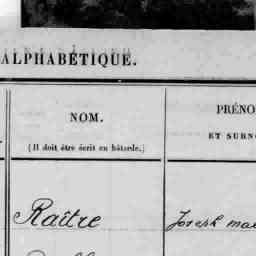 ALPHABÉTIQUE.
NOM.
(Il doit être écrit en bâtarde.)
PRÉNO
ET SURNO
Raître Joseph